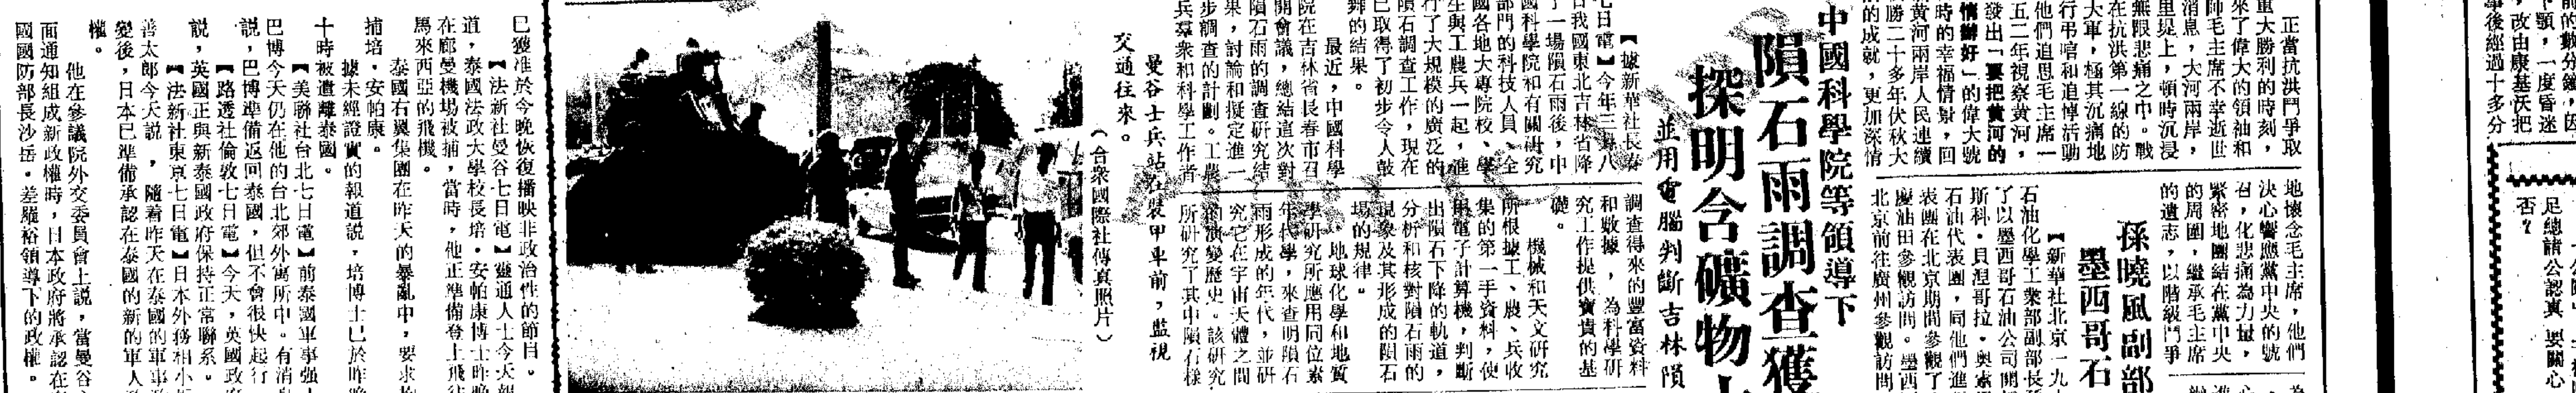 否？
足總諸公認真 要關心
正當抗洪鬥爭取
重大勝利的時刻，
來了偉大的領袖和
師毛主席不幸逝世
消息，大河兩岸，
里堤上，頓時沉浸
無限悲痛之中。戰
在抗洪第一線的防
大軍，極其沉痛地
行弔唁和追悼活動
他們追思毛主席一
五二年視察黃河，
發出「要把黃河的
情辦好」的偉大號
時的幸福情景，回
黃河兩岸人民連續
勝二十多年伏秋大
的成就，更加深情
地懷念毛主席，他們
決心響應黨中央的號
召，化悲痛為力量，
緊密地團結在黨中央
的周圍，繼承毛主席
的遺志，以階級鬥爭
孫曉風副部
墨西哥石
【新華社北京一九
石油化學工業部副部長孫
了以墨西哥石油公司開
斯科·貝涅哥拉·奧索
石油代表團，同他們進
表團在北京期間參觀了
慶油田參觀訪問。墨西
北京前往廣州參觀訪問
中國科學院等領導下
隕石雨調查獲
探明含礦物
並用電腦判斷吉林隕
【據新華社長春
七日電】今年三月八
日我國東北吉林省降
了一場隕石雨後，中
國科學院和有關研究
部門的科技人員、全
國各地大專院校、學
生與工農兵一起，進
行了大規模的廣泛的
隕石調查工作，現在
已取得了初步令人鼓
舞的結果。
最近，中國科學
院在吉林省長春市召
開會議，總結這次對
隕石雨的調查研究結
果，討論和擬定進一
步調查的計劃。工農
兵羣衆和科學工作者
調查得來的豐富資料
和數據，為科學研
究工作提供寶貴的基
礎。
機械和天文研究
所根據工、農、兵收
集的第一手資料，使
用電子計算機，判斷
出隕石下降的軌道，
分析和核對隕石雨的
現象及其形成的隕石
場的規律。
地球化學和地質
學研究所應用同位素
年代學，來查明隕石
雨形成的年代，並研
究它在宇宙天體之間
的演變歷史。該研究
所研究了其中隕石樣
曼谷士兵站在裝甲車前，監視
交通往來。
（合衆國際社傳真照片）
已獲准於今晚恢復播映非政治性的節目。
【法新社曼谷七日電】靈通人士今天報
道，泰國法政大學校長培·安帕康博士昨晚
在廊曼機場被捕，當時，他正準備登上飛往
馬來西亞的飛機。
泰國右翼集團在昨天的暴亂中，要求拘
捕培·安帕康。
據未經證實的報道説，培博士已於昨晚
十時被遣離泰國。
【美聯社台北七日電】前泰國軍事強人
巴博今天仍在他的台北郊外寓所中。有消息
説，巴博準備返回泰國，但不會很快起行。
【路透社倫敦七日電】今天，英國政府
説，英國正與新泰國政府保持正常聯系。
【法新社東京七日電】日本外務相小坂
善太郎今天説，隨着昨天在泰國的軍事政
變後，日本已準備承認在泰國的新的軍人政
權。
他在參議院外交委員會上説，當曼谷方
面通知組成新政權時，日本政府將承認在泰
國國防部長沙岳·差羅裕領導下的政權。